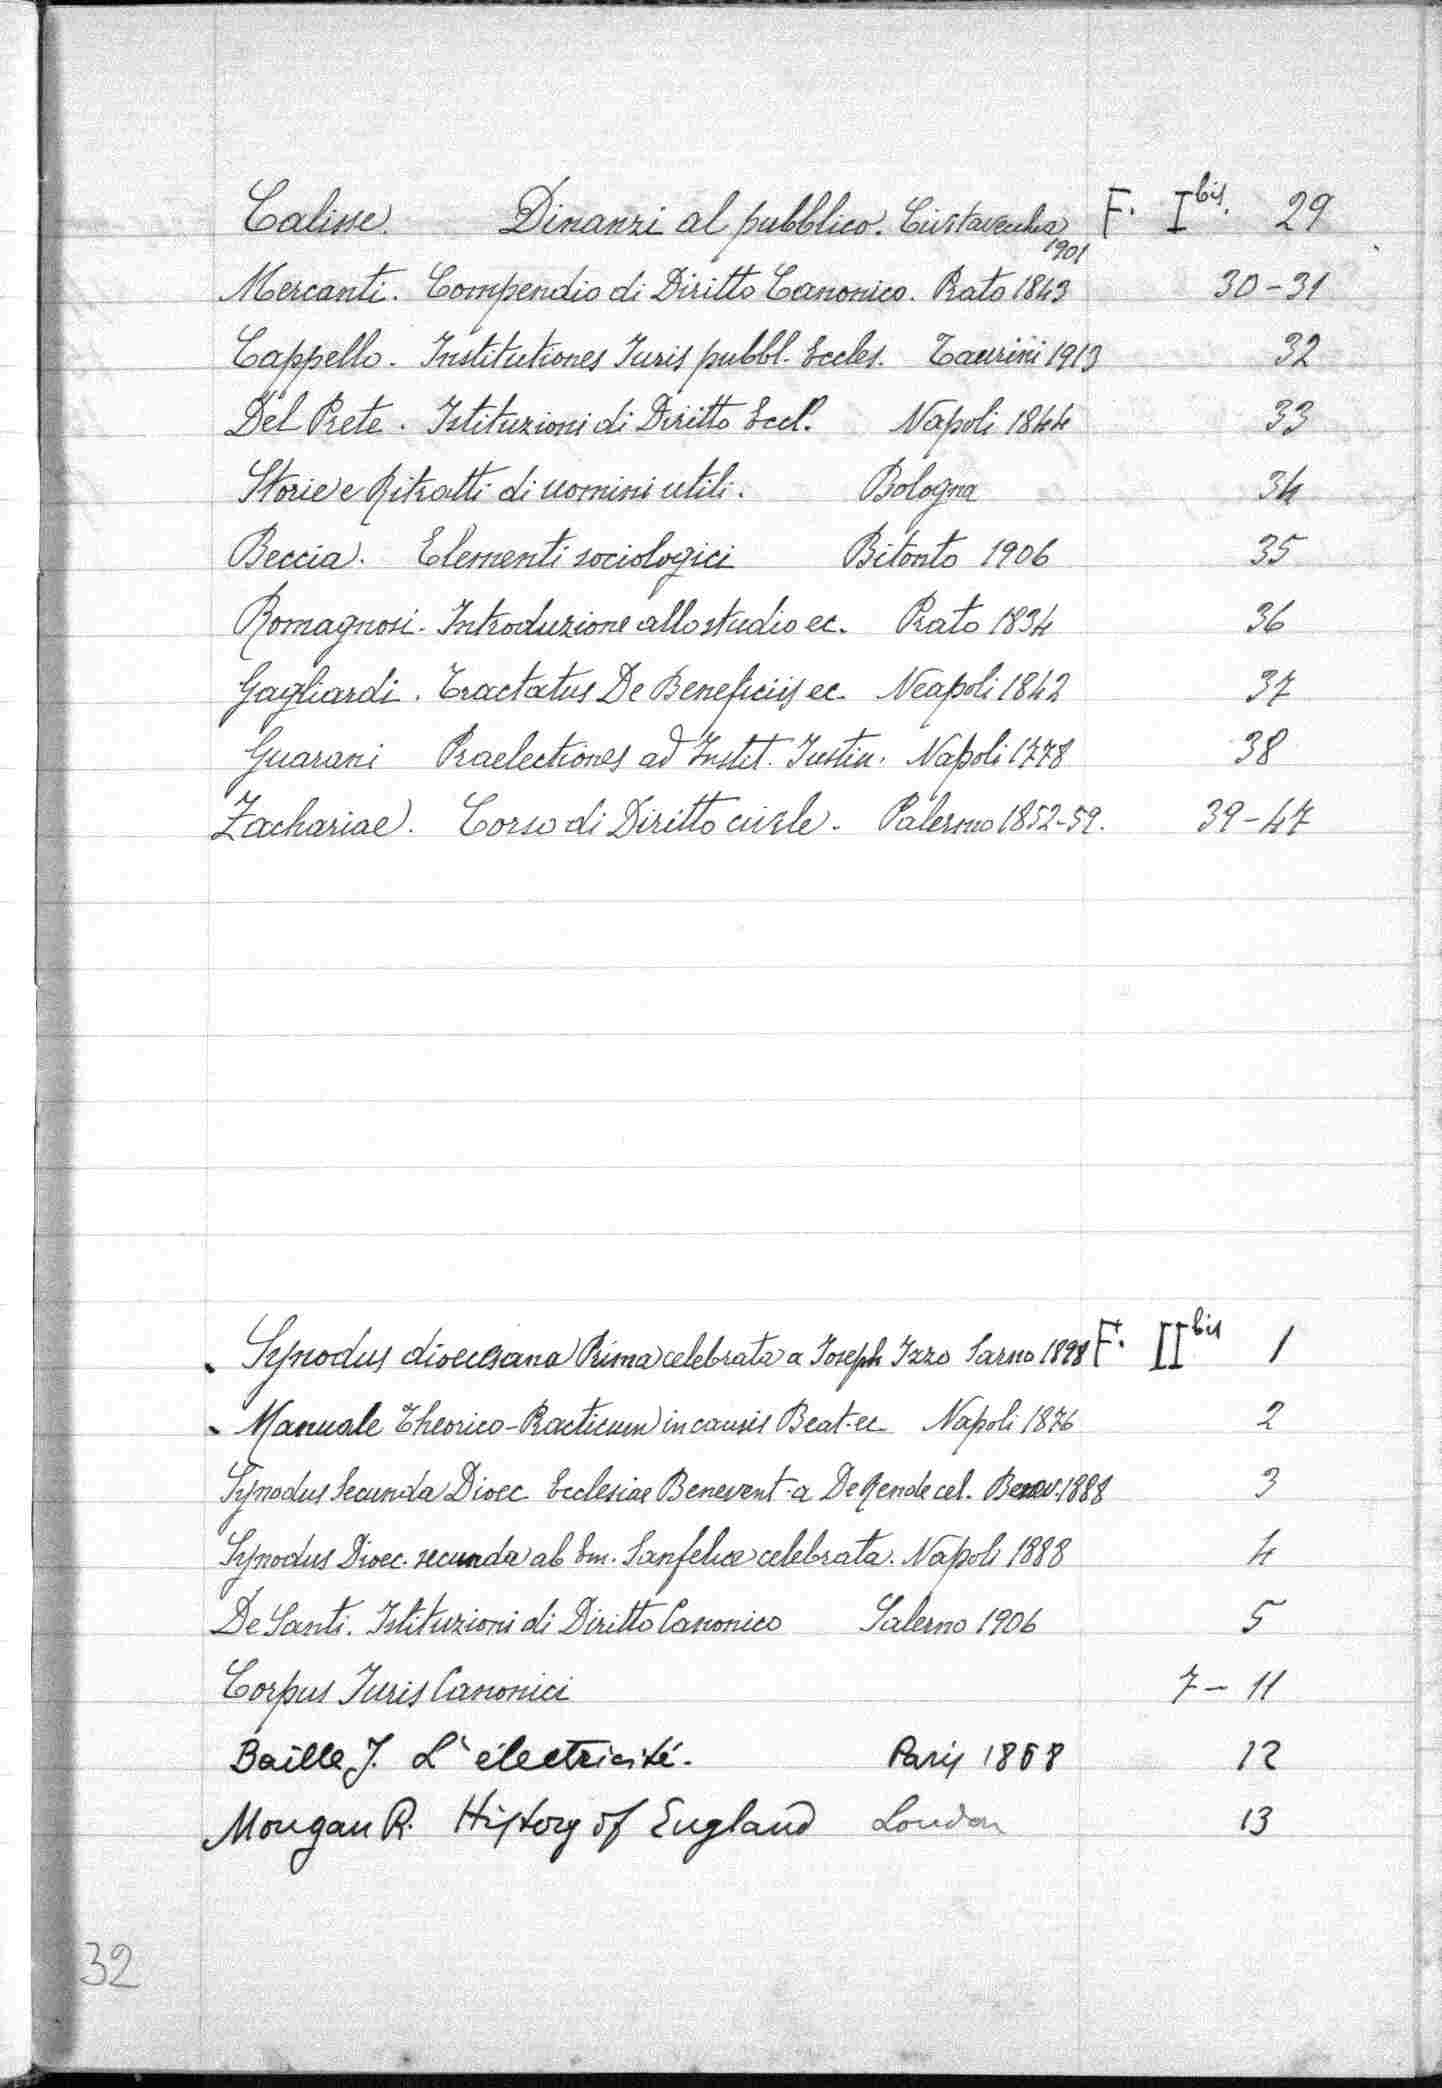 Calisse. Dinanzi al pubblico. Civitavecchia 1901 F. I bis. 29
Mercanti. Compendio di Diritto Canonico. Prato 1843 30-31
Cappello. Institutiones Iuris pubbl. Eccles. Taurini 1913 32
Del Prete. Istituzioni di Diritto Eccl. Napoli 1844 33
Storie e Ritratti di uomini utili. Bologna 34
Beccia. Elementi sociologici Bitonto 1906 35
Romagnosi. Introduzione allo studio ec. Prato 1834 36
Gagliardi. Tractatus De Beneficiis ec. Neapoli 1842 37
Guarani Praelectiones ad Instit. Justin. Napoli 1778 38
Zachariae. Corso di Diritto civile. Palermo 1852-59. 39-47
Synodus dioecesana Prima celebrata a Joseph Izzo Sarno 1898 F. II bis 1
Manuale Theorico-Practicum in causis Beat. ec. Napoli 1876 2
Synodus Secunda Dioec. Ecclesiae Benevent. a De Rende cel. Benev. 1888 3
Synodus Dioec. secunda ab Em. Sanfelice celebrata. Napoli 1888 4
De Santi. Istituzioni di Diritto Canonico Salerno 1906 5
Corpus Juris Canonici 7-11
Baille J. L'électricité. Paris 1868 12
Mougan R. History of England London 13
32